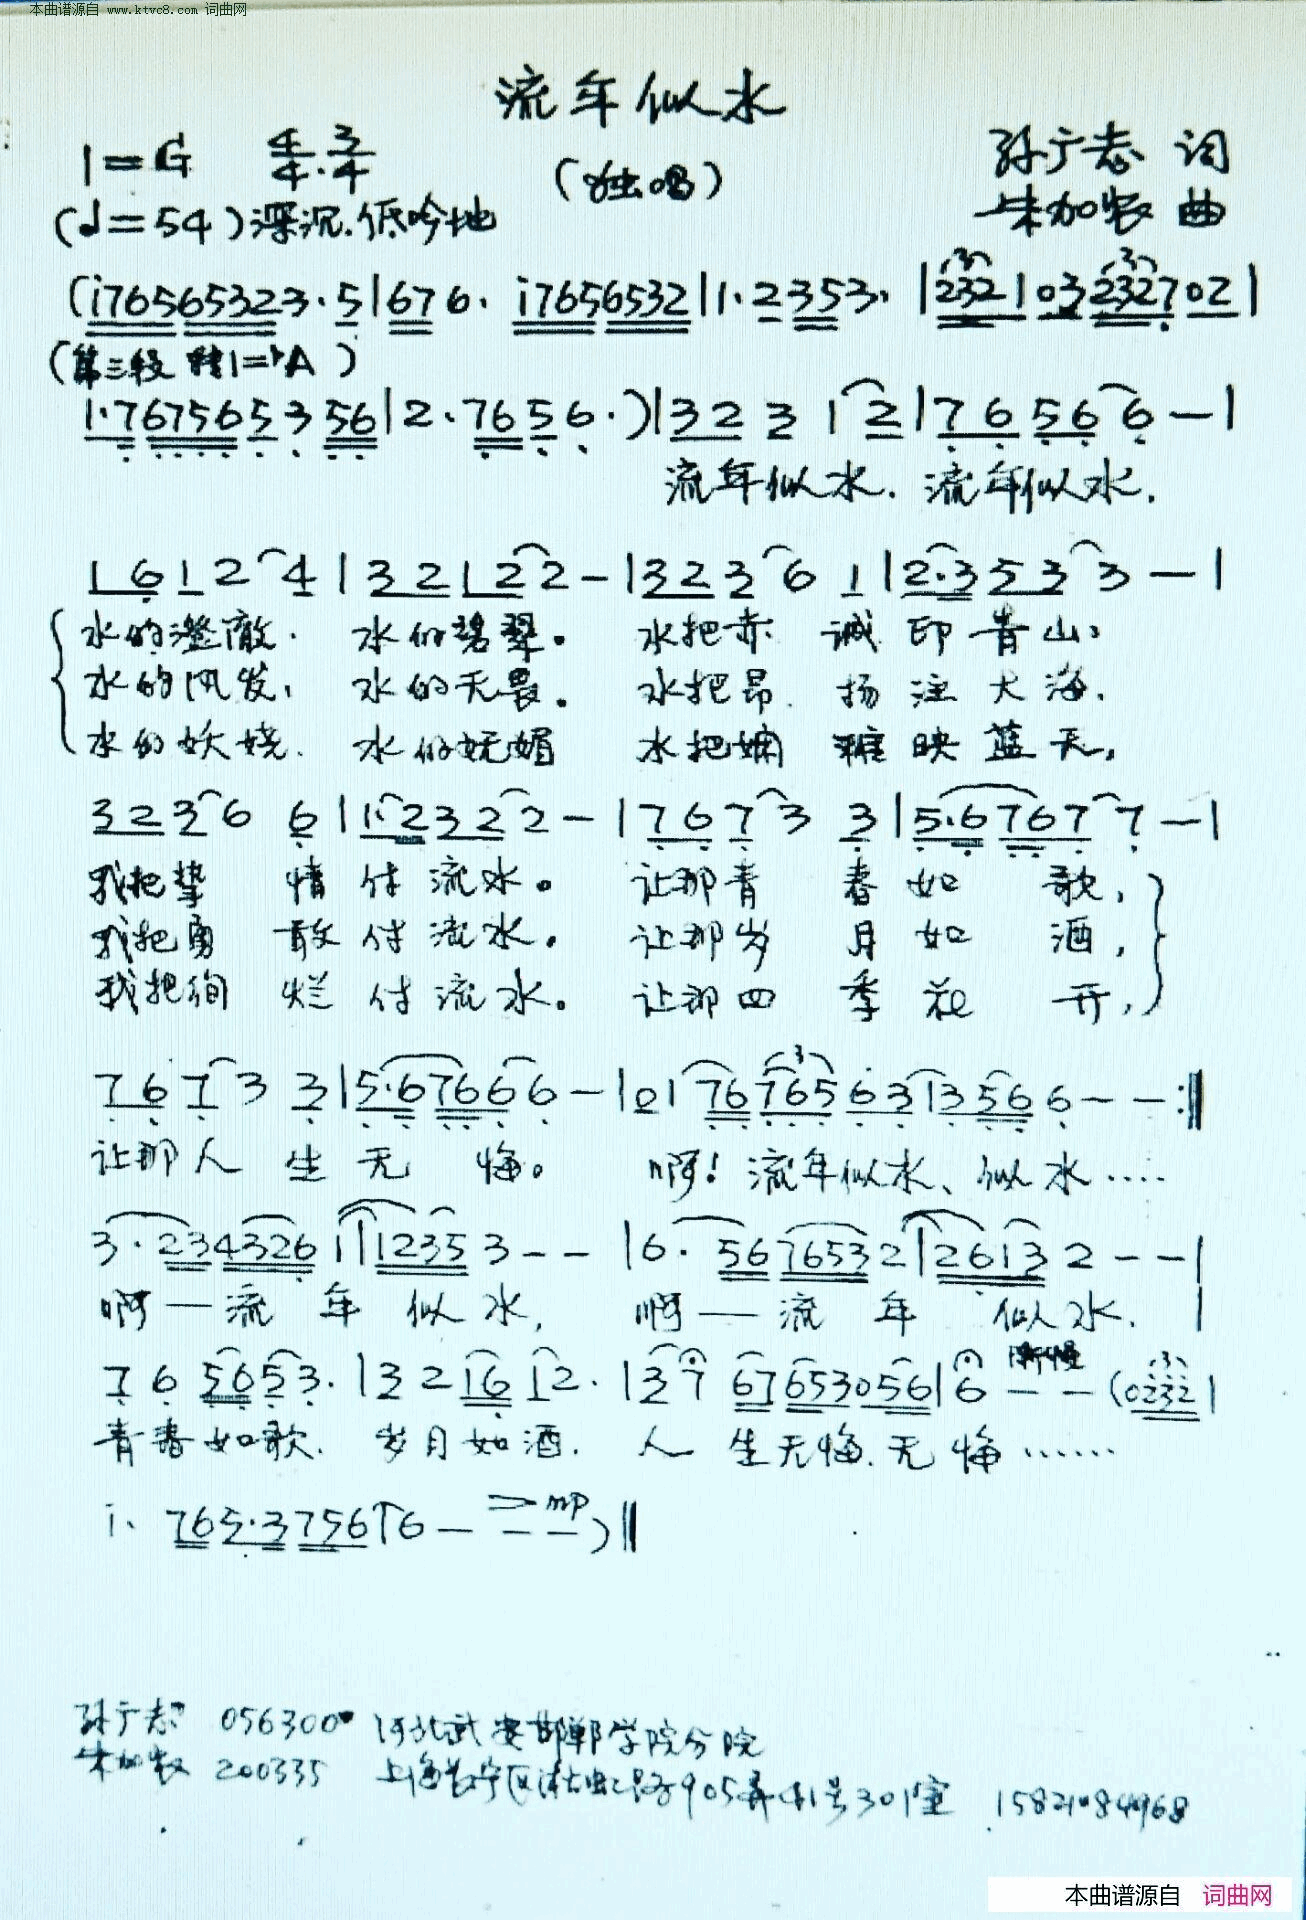 本曲谱源自 www.ktvc8.com 词曲网
流年似水
1=G 4/4 3/4 (独唱) 孙广志 词
(♩=54)深沉.低吟地 朱加农 曲
(i76565323·5|676· i7656532|1·2353·|232 1 03232702|
(第三段 转1=♭A)
1·767565356|2·7656·)|323 12|76566—|
流年似水. 流年似水.
1612 4|321 22—|3236 1|2·3533—|
水的澄澈. 水的碧翠。 水把赤 诚 印青山、
水的风发, 水的无畏。 水把昂 扬 注大海.
水的妖娆. 水的妩媚 水把斓 斑 映蓝天,
3236 6|1·23222—|7673 3|5·67677—|
我把挚 情付流水。 让那青 春如 歌,
我把勇 敢付流水。 让那岁 月如 酒,
我把绚 烂付流水。 让那四 季花 开,
7673 3|5·67666—|01 76765 63 13566——:‖
让那人 生无 悔。 啊!流年似水、似水····
3·2343261|12353——|6·5676532|26132——|
啊—流 年 似水, 啊——流 年 似水.
76 5653·|3216 12·|37 676530 56|6—— 渐慢 (0232|
青春如歌. 岁月如酒. 人 生无悔.无悔······
i. 765·37566———mp)‖
孙广志 056300 河北武安邯郸学院分院
朱加农 200335 上海长宁区淞虹路905弄41号301室
本曲谱源自 词曲网